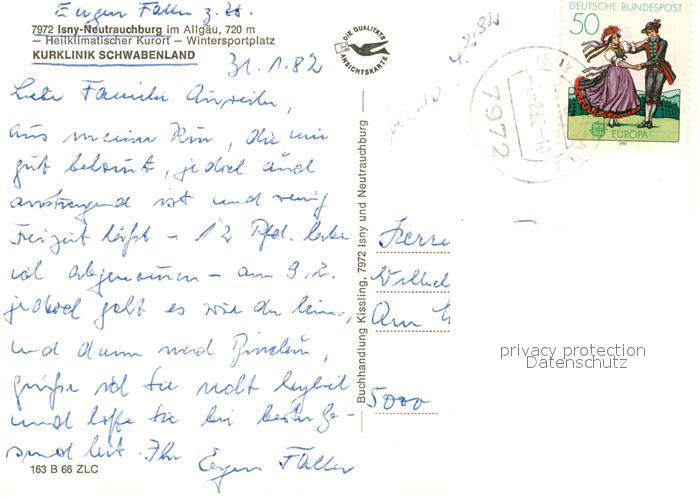 Eugen Faller z. Zt.
7972 Isny-Neutrauchburg im Allgäu, 720 m
— Heilklimatischer Kurort — Wintersportplatz
KURKLINIK SCHWABENLAND
31.1.82
DIE QUALITÄTS
ANSICHTSKARTE
DEUTSCHE BUNDESPOST
50
EUROPA
1981
7972
Liebe Familie
aus meiner Kur, die mir
gut bekommt, jedoch auch
anstrengend ist und wenig
Freizeit läßt - 12 Pfd. habe
ich abgenommen - am 9.2.
jedoch geht es wieder heim,
und dann nach
grüße ich Sie recht herzlich
und hoffe Sie bei bester Ge-
sundheit. Ihr Eugen Faller
163 B 66 ZLC
Buchhandlung Kissling, 7972 Isny und Neutrauchburg
Herrn
Wilhel
Am
5000
privacy protection
Datenschutz